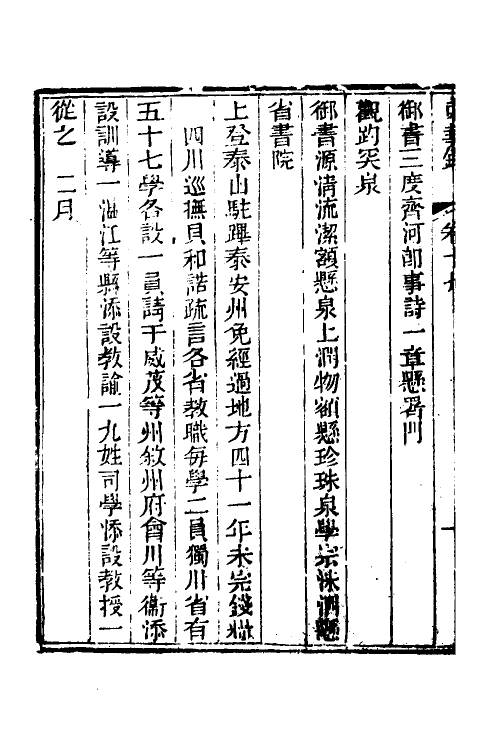 東華錄 卷十七
御書三度齊河卽事詩一章懸署門
觀趵突泉
御書源淸流潔額懸泉上潤物額懸珍珠泉學宗洙泗懸
省書院
上登泰山駐蹕泰安州免經過地方四十一年未完錢糧
四川巡撫貝和諾疏言各省教職每學二員獨川省有
五十七學各設一員請于威茂等州敘州府會川等衞添
設訓導一溫江等縣添設教諭一九姓司學添設教授一
從之 二月